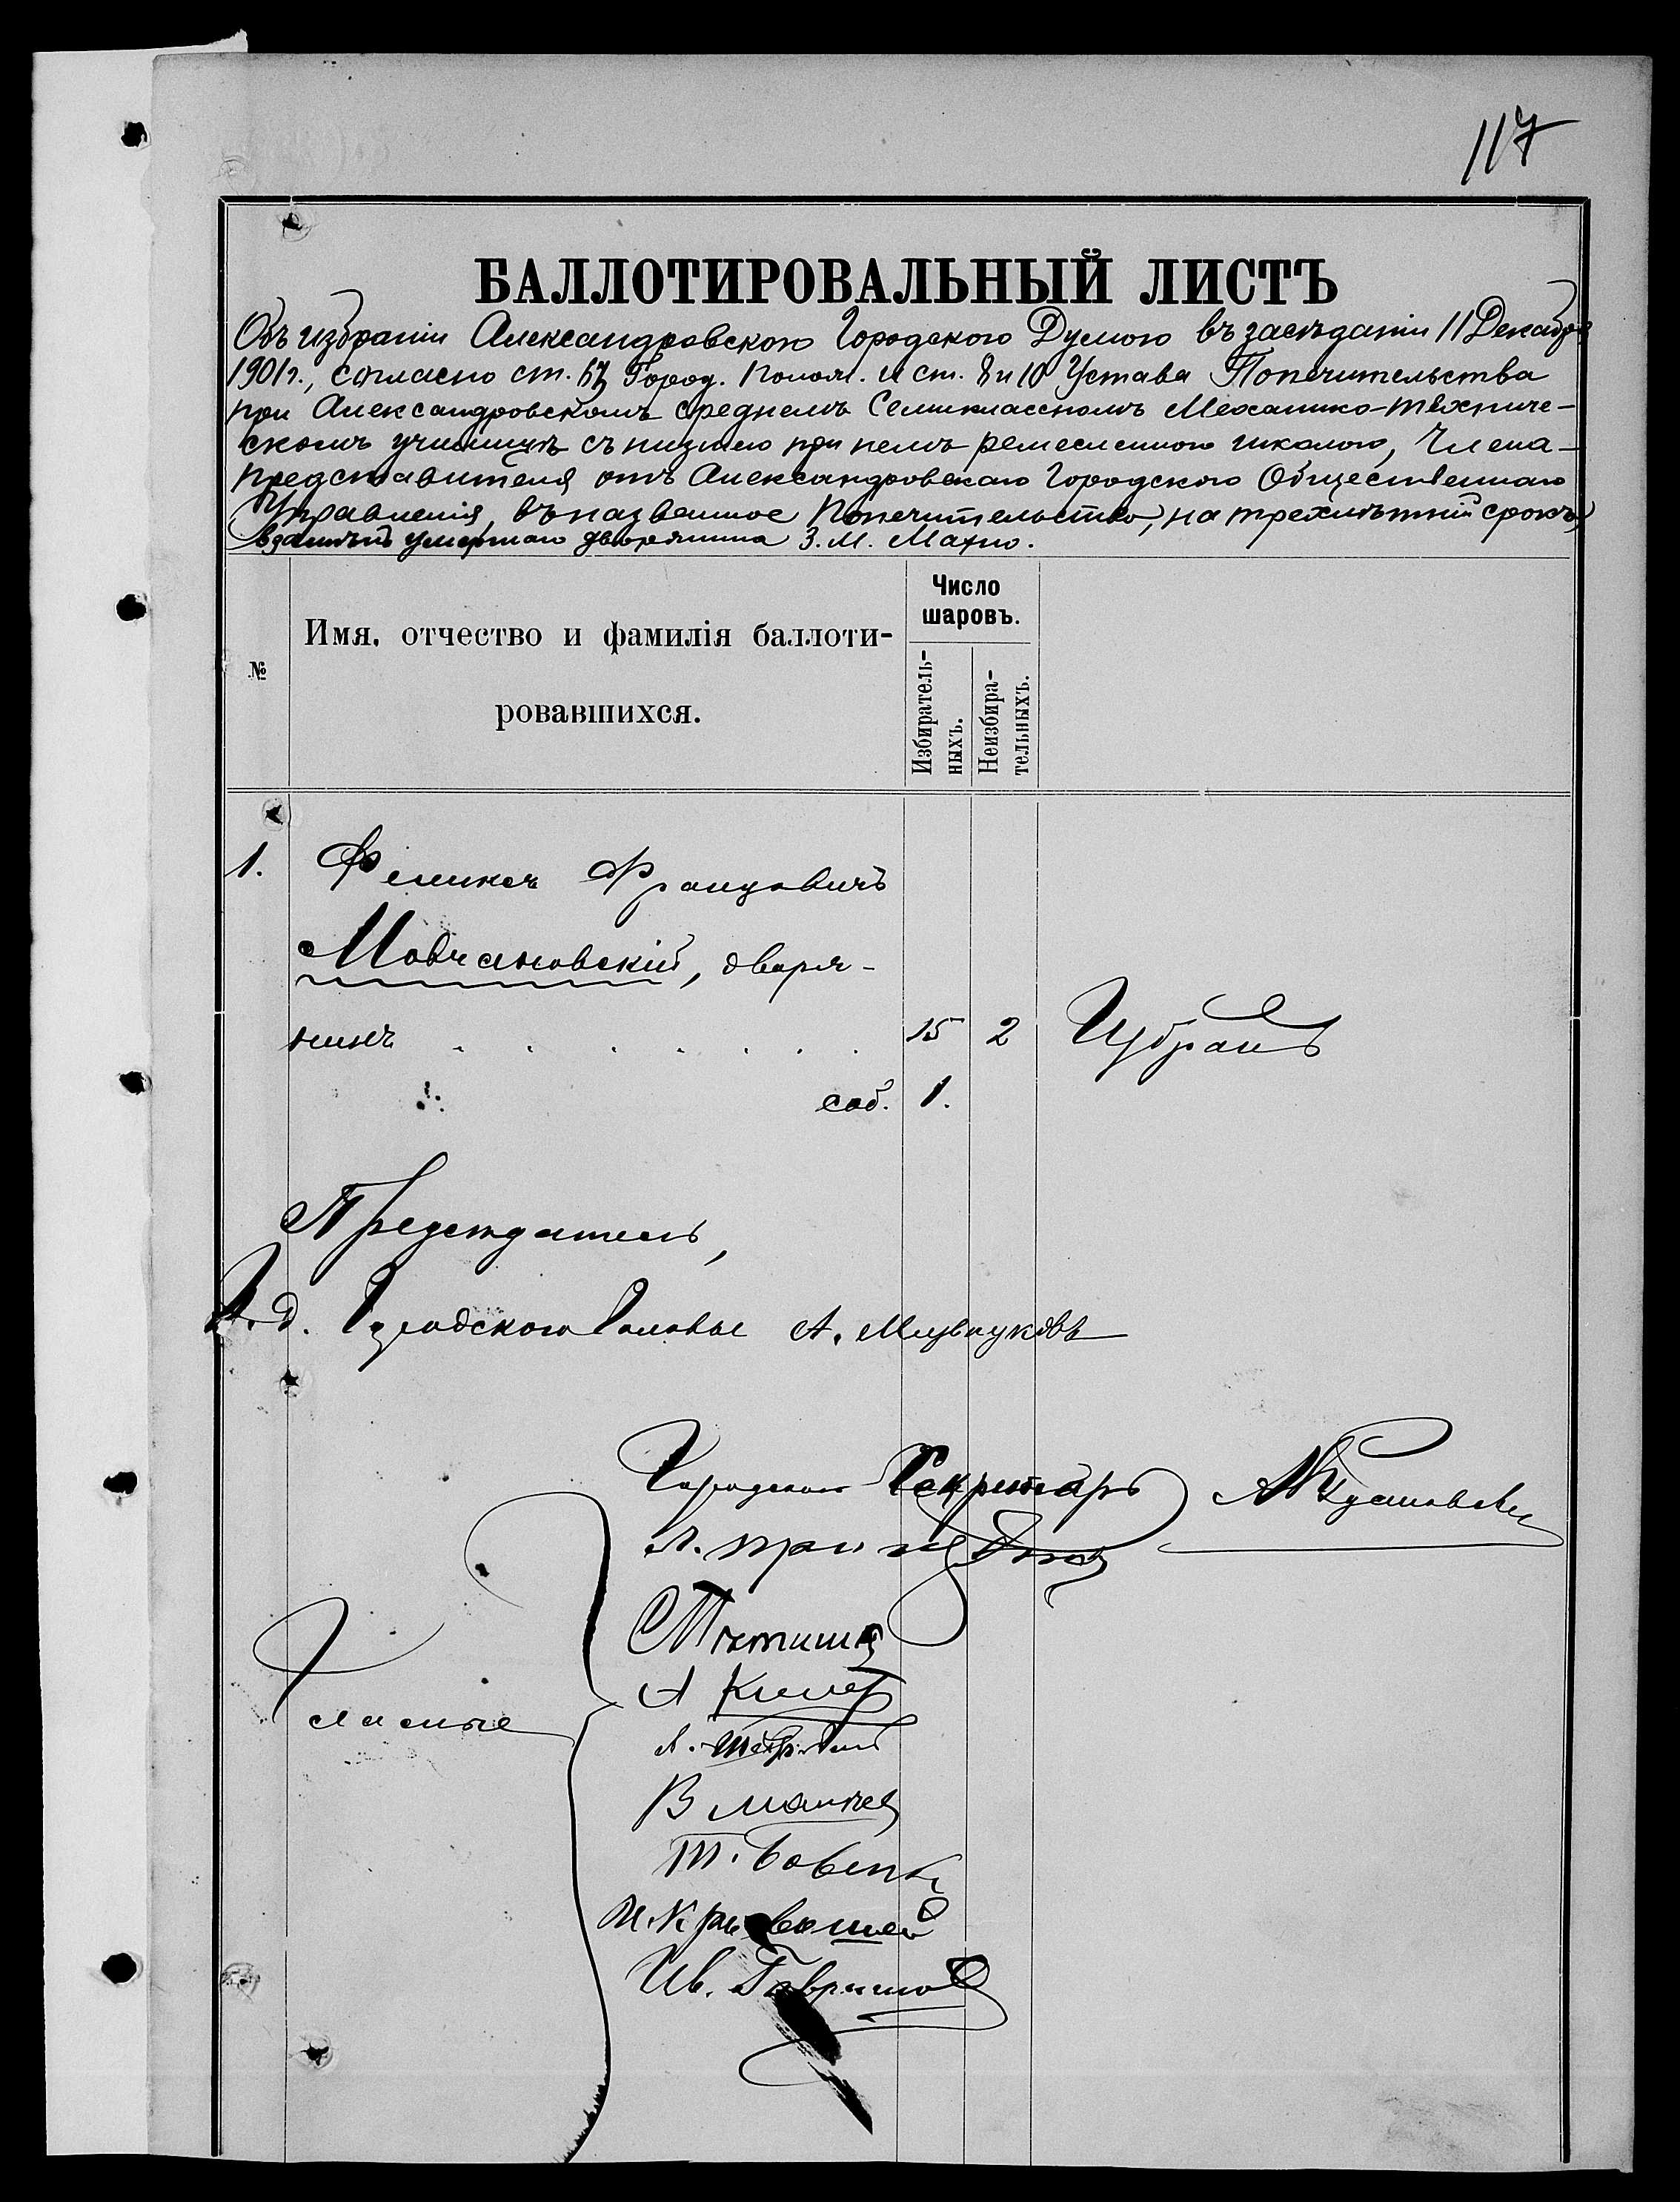 117
БАЛЛОТИРОВАЛЬНЫЙ ЛИСТЪ
Объ избраніи Александровскою Городскою Думою въ засѣданіи 11 Декабря
1901 г., согласно ст. Город. Полож. и ст. 8 и 10 Устава Попечительства
при Александровскомъ среднемъ Семиклассномъ Механико-техниче-
скомъ училищѣ съ низшею при немъ ремесленною школою, Члена-
представителя отъ Александровскаго Городского Общественнаго
Управленія, въ названное Попечительство, на трехлѣтній срокъ,
взамѣнъ умершаго дворянина З. М. Махно.
№
Имя, отчество и фамилія баллоти-
ровавшихся.
Число
шаровъ.
Избиратель-
ныхъ.
Неизбира-
тельныхъ.
1. Феликсъ Францовичъ
Мовчановскій, дворя-
нинъ . . . . . . . . 15 2 Избранъ
соб. 1.
Предсѣдатель,
И. д. Городского Головы А.
Городской Секретарь
Гласные
А
В
Т.
И. Кривошей
Ив. Гаврилов